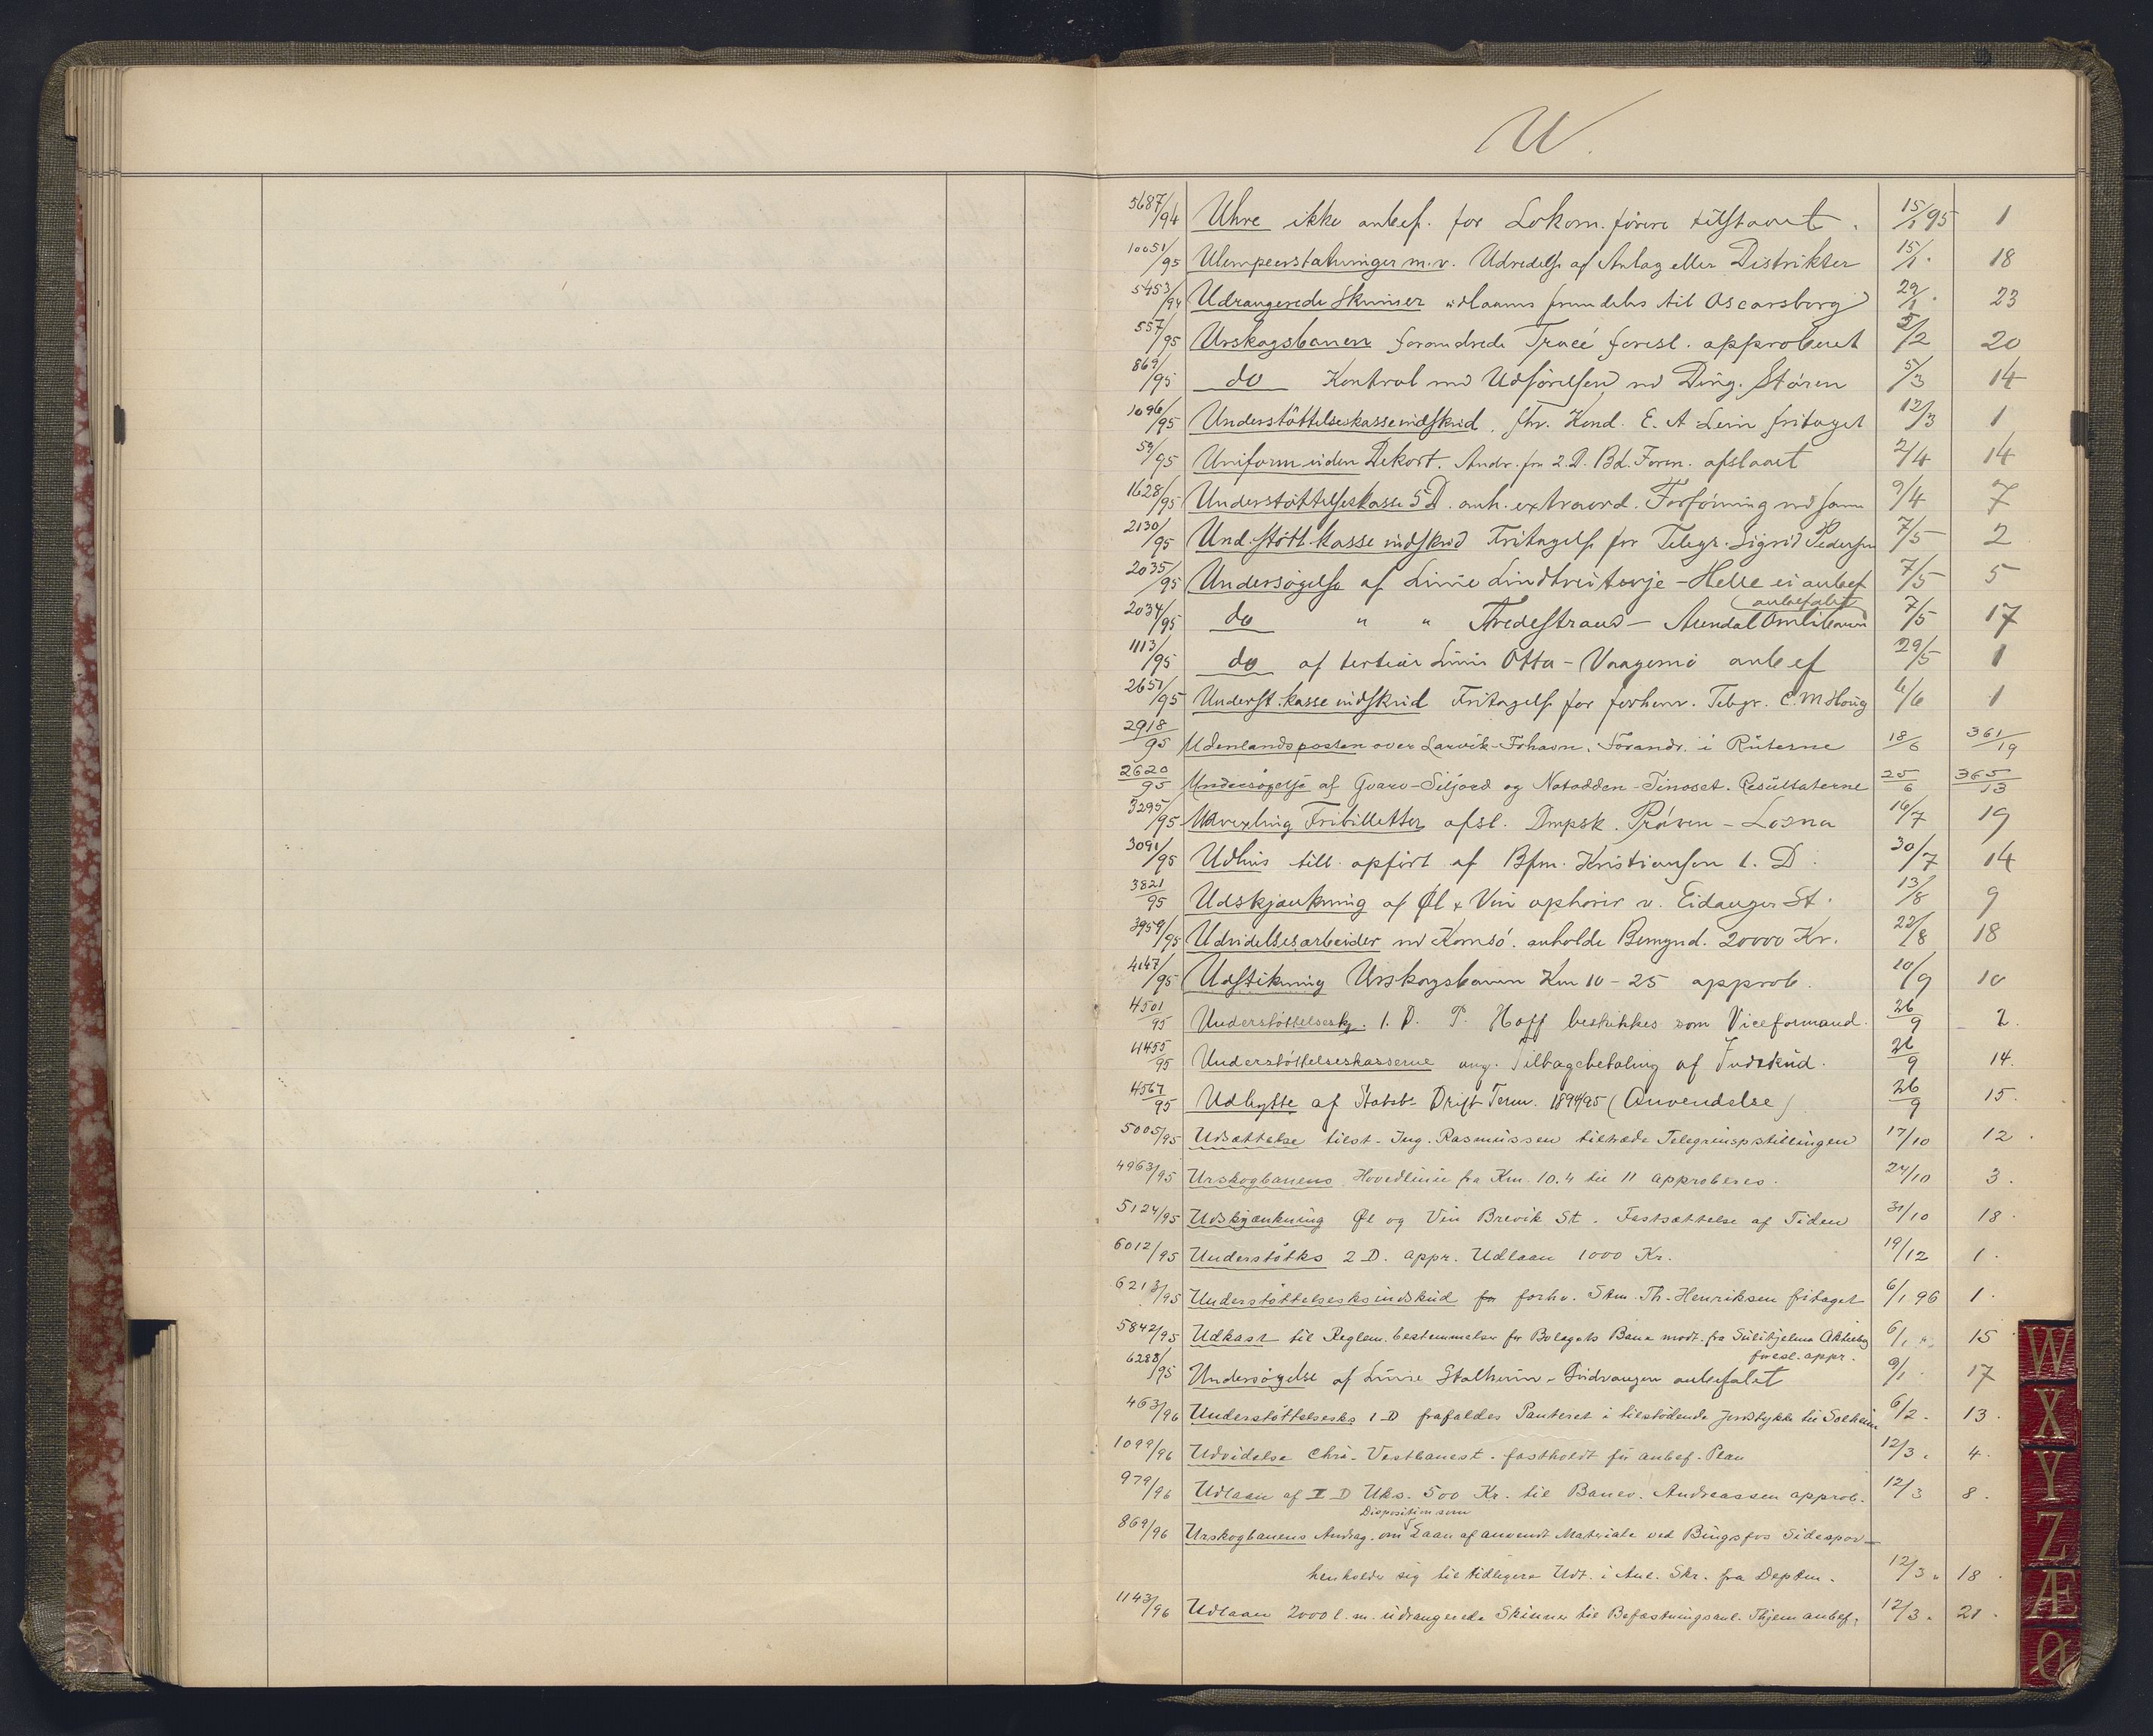 U.
5687/94 Uhre ikke anbef. for Lokom.förere tilstaaet. 15/1 95 1
10051/95 Ulempeerstatninger m.v. Udredelse af Anlæg eller Distrikter 15/1 18
5453/94 Udrangerede Skinner udlaans fremdeles til Oscarsborg 29/1 23
557/95 Urskogsbanen forandrede Tracé foresl. approberet 5/2 20
869/95 do Kontrol med Udförelsen ved Ding. Stören 5/3 14
1096/95 Understöttelseskasseindskud. fhv. Kond. E. A. Lein fritaget 12/3 1
59/95 Uniform uden Dekort. Andr. fra 2. D. Bd. Foren. afslaaet 2/4 14
1628/95 Understöttelseskasse 5 D. anh. extraord. Forföining med samme 9/4 7
2130/95 Und.stött.kasse indskud Fritagelse for Telegr. Sigrid Pedersen 7/5 2
2035/95 Undersögelse af Linie Lindtveitevje - Helle ei anbef 7/5 5
anbefalet
2034/95 do " " Tvedestrand - Arendal Omlibanen 7/5 17
1113/95 do af tertiær Linie Otta - Vaagemo anbef 29/5 1
2651/95 Underst.kasse indskud Fritagelse for forhenv. Telegr. C. M. Houg 6/6 1
2918/95 Udenlandsposten over Larvik-Frhavn. Forandr. i Ruterne 18/6 361/19
2620/95 Undersögelse af Gvarv-Siljord og Notodden-Tinoset. Resultaterne 25/6 365/13
3295/95 Udvexling Fribilletter afsl. Dmpsk. Pröven - Losna 16/7 19
3091/95 Udhus till. opfört af Bfm. Kristiansen 1. D. 30/7 14
3821/95 Udskjænkning af Øl & Vin ophörer v. Eidanger St. 13/8 9
3959/95 Udvidelsesarbeider ved Kornsö. anholde Bemynd. 20000 Kr. 22/8 18
4147/95 Udstikning Urskogsbanen Km 10 - 25 approb. 10/9 10
4501/95 Understöttelsesk. 1. D. P. Hoff beskikkes som Viceformand. 26/9 2.
4455/95 Understöttelseskasserne ang. Tilbagebetaling af Indskud. 26/9 14.
4567/95 Udbytte af Statsb. Drift Term. 1894/95 (Anvendelse) 26/9 15.
5005/95 Udsættelse tilst. Ing. Rasmussen tiltræde Telegrinspstillingen 17/10 12.
4963/95 Urskogbanens Hovedlinie fra Km. 10.4 til 11 approberes. 24/10 3.
5124/95 Udskjænkning Øl og Vin Brevik St. Fastsættelse af Tiden 31/10 18.
6012/95 Understötks 2 D. appr. Udlaan 1000 Kr. 19/12 1.
6213/95 Understöttelsesksindskud for forhv. Stm. Th. Henriksen fritaget 6/1 96 1.
5842/95 Udkast til Reglem. bestemmelser for Bolagets Bane modt. fra Sulitjelma Aktiebg 6/1 15
foresl. appr.
6288/95 Undersögelse af Linie Stalheim - Gudvangen anbefalet 9/1 17
463/96 Understöttelsesks 1 D frafaldes Panteret i tilstödende Jordstykke til Solheim 6/2. 13.
1099/96 Udvidelse Chra. Vestbanest. fastholdt för anbef. Plan 12/3. 4.
979/96 Udlaan af II D Uks. 500 Kr. til Banev. Andreassen approb. 12/3 8.
Disposition som
869/96 Urskogbanens Andrag. om Laan af anvendt Materiale ved Bingsfos Sidespor
henholder sig til tidligere Udt. i Anl. Skr. fra Depten. 12/3. 18.
1143/96 Udlaan 2000 l. m. udrangerede Skinner til Befæstningsanl. Thjem anbef. 12/3. 21.
W
X
Y
Z
Æ
Ø